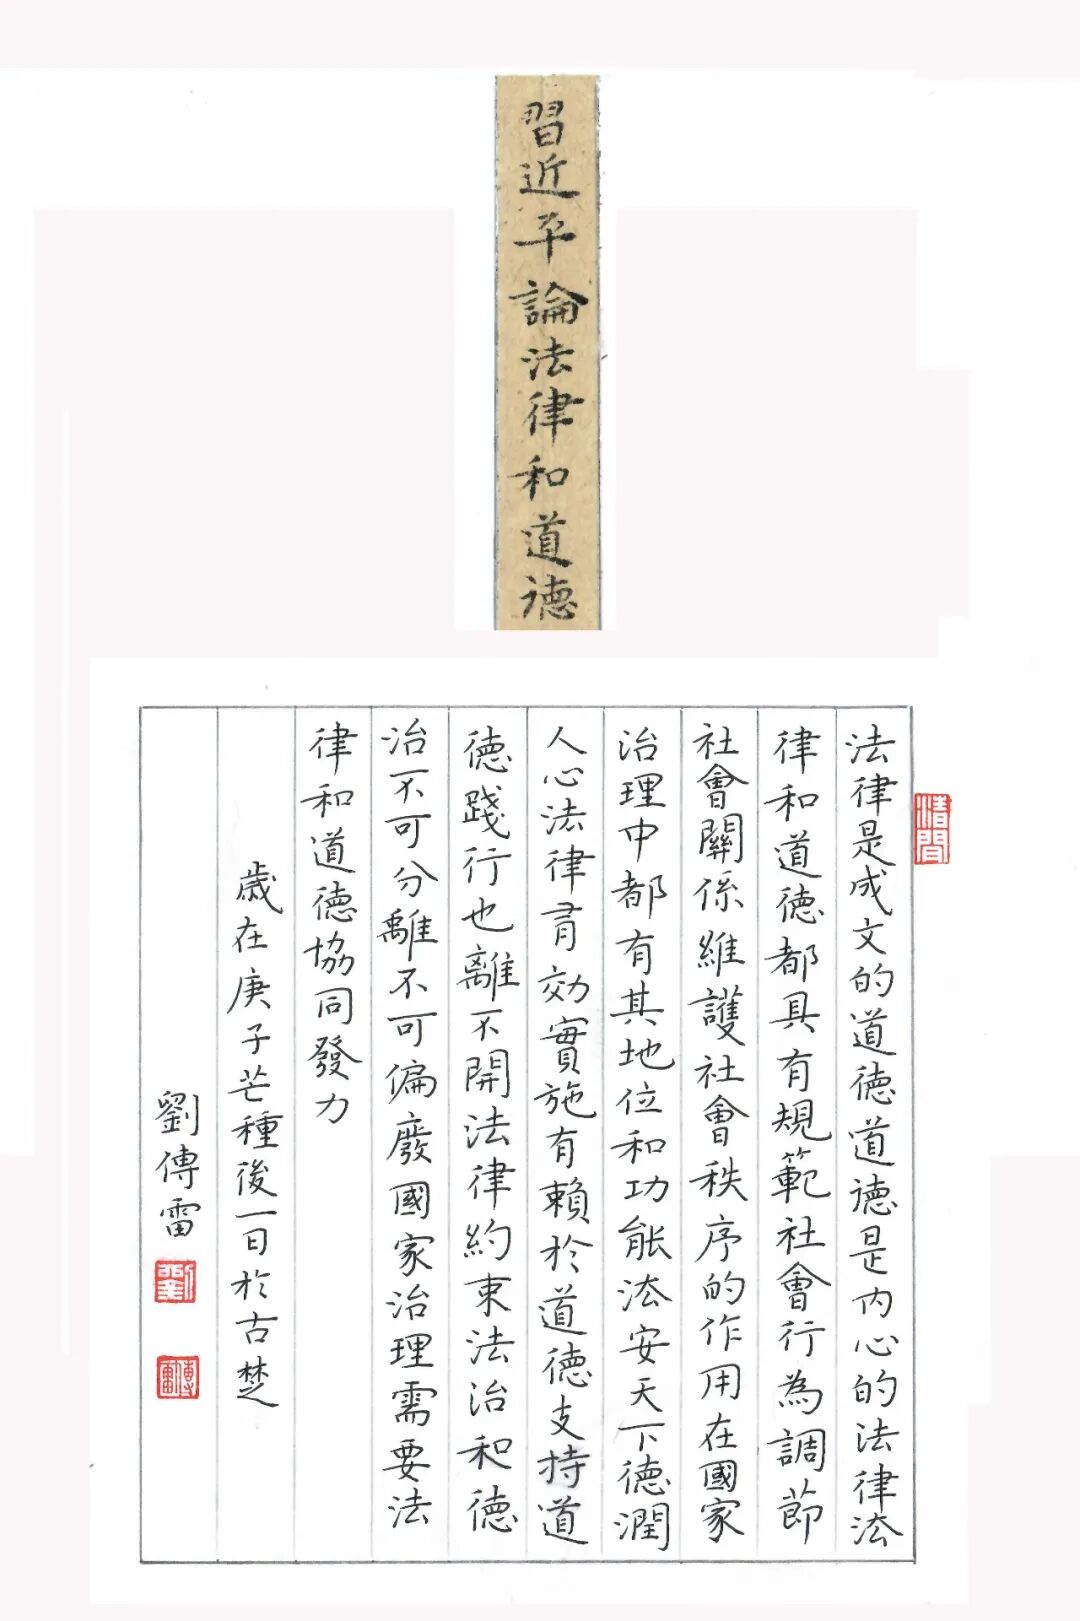 習近平論法律和道德
法律是成文的道德道德是内心的法律法
律和道德都具有規範社會行為調節
社會關係維護社會秩序的作用在國家
治理中都有其地位和功能法安天下德潤
人心法律有効實施有賴於道德支持道
德踐行也離不開法律約束法治和德
治不可分離不可偏廢國家治理需要法
律和道德協同發力
歲在庚子芒種後一日於古楚
劉傳雷
劉
傳雷